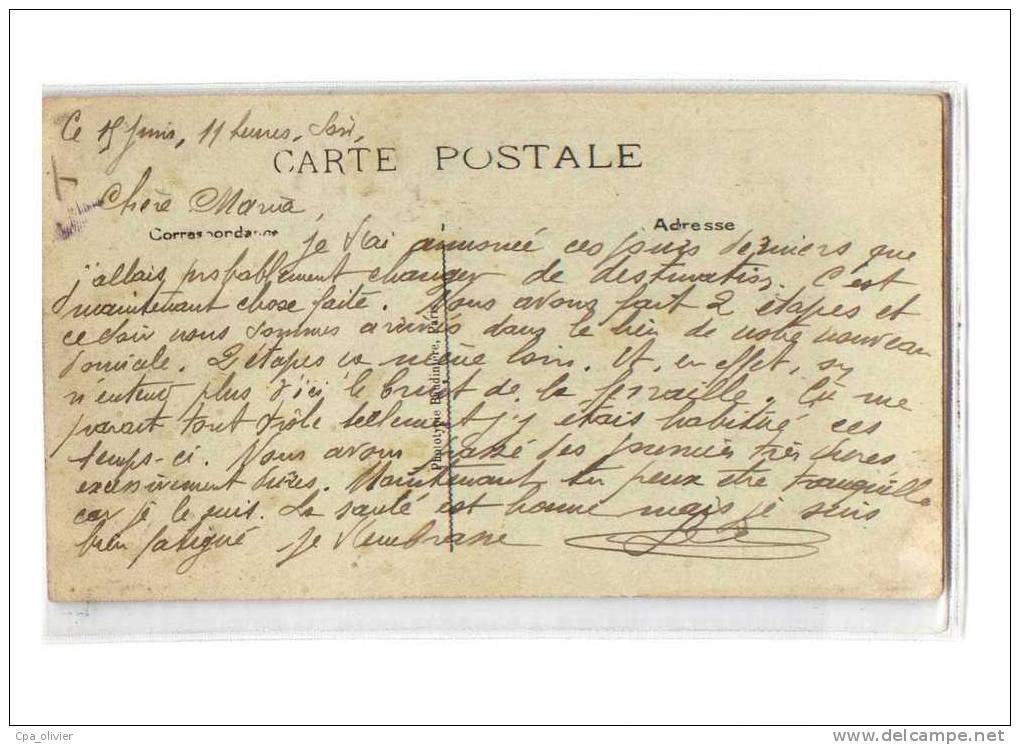 Ce 15 juin, 11 heures, soir,
CARTE POSTALE
Chère Maria,
Correspondance
Adresse
Je t'ai annoncé ces jours derniers que
j'allais probablement changer de destination. C'est
maintenant chose faite. Nous avons fait 2 étapes et
ce soir nous sommes arrivés dans le lieu de notre nouveau
domicile. 2 étapes ca mène loin. Et, en effet, on
n'entend plus d'ici le bruit de la ferraille. Ca me
parait tout drôle tellement j'y étais habitué ces
temps-ci. Nous avons passé des très dures
excessivement dures. Maintenant tu peux etre tranquille
car je le suis. La santé est bonne mais je suis
bien fatigué Je t'embrasse
Phototypie Baudinière, Paris
Cpa_olivier
www.delcampe.net